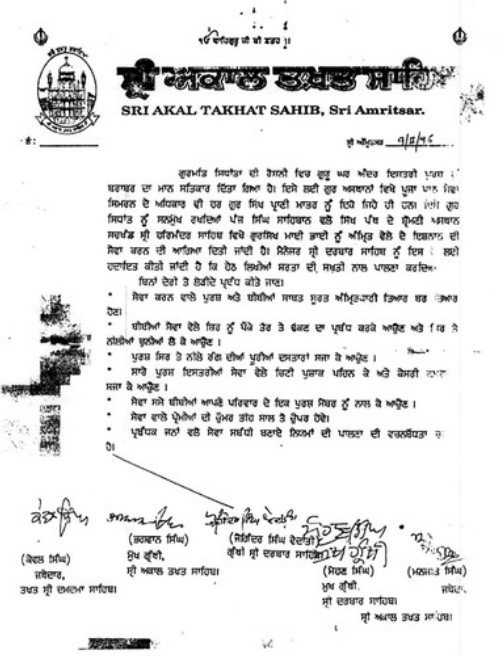 ੴ ਵਾਹਿਗੁਰੂ ਜੀ ਕੀ ਫਤਹ ॥
ਸ੍ਰੀ ਅਕਾਲ ਤਖ਼ਤ ਸਾਹਿਬ
SRI AKAL TAKHAT SAHIB, Sri Amritsar.
ਨੰ:
ਸ੍ਰੀ ਅੰਮ੍ਰਿਤਸਰ
ਗੁਰਮਤਿ ਸਿਧਾਂਤਾ ਦੀ ਰੋਸ਼ਨੀ ਵਿਚ ਗੁਰੂ ਘਰ ਅੰਦਰ ਇਸਤਰੀ ਪੁਰਸ਼
ਬਰਾਬਰ ਦਾ ਮਾਨ ਸਤਿਕਾਰ ਦਿੱਤਾ ਗਿਆ ਹੈ। ਇਸੇ ਲਈ ਗੁਰ ਅਸਥਾਨਾਂ ਵਿਖੇ ਪੂਜਾ ਪਾਠ ਸੇਵਾ
ਸਿਮਰਨ ਦੇ ਅਧਿਕਾਰ ਵੀ ਹਰ ਗੁਰ ਸਿਖ ਪ੍ਰਾਣੀ ਮਾਤਰ ਨੂੰ ਇਕੋ ਜਿਹੇ ਹੀ ਹਨ। ਗੁਰ
ਸਿਧਾਂਤ ਨੂੰ ਸਨਮੁਖ ਰਖਦਿਆਂ ਪੰਜ ਸਿੰਘ ਸਾਹਿਬਾਨ ਵਲੋਂ ਸਿਖ ਪੰਥ ਦੇ ਸ਼੍ਰੋਮਣੀ ਅਸਥਾਨ
ਸਚਖੰਡ ਸ੍ਰੀ ਹਰਿਮੰਦਰ ਸਾਹਿਬ ਵਿਖੇ ਗੁਰਸਿਖ ਮਾਈ ਭਾਈ ਨੂੰ ਅੰਮ੍ਰਿਤ ਵੇਲੇ ਦੇ ਇਸ਼ਨਾਨ ਦੀ
ਸੇਵਾ ਕਰਨ ਦੀ ਆਗਿਆ ਦਿਤੀ ਜਾਂਦੀ ਹੈ। ਮੈਨੇਜਰ ਸ੍ਰੀ ਦਰਬਾਰ ਸਾਹਿਬ ਨੂੰ ਇਸ ਲਈ
ਹਦਾਇਤ ਕੀਤੀ ਜਾਂਦੀ ਹੈ ਕਿ ਹੇਠ ਲਿਖੀਆਂ ਸਰਤਾ ਦੀ ਸਖ਼ਤੀ ਨਾਲ ਪਾਲਣਾ ਕਰਦਿਆ
ਬਿਨਾਂ ਦੇਰੀ ਤੋਂ ਲੋੜੀਂਦੇ ਪ੍ਰਬੰਧ ਕੀਤੇ ਜਾਣ।
* ਸੇਵਾ ਕਰਨ ਵਾਲੇ ਪੁਰਸ਼ ਅਤੇ ਬੀਬੀਆਂ ਸਾਬਤ ਸੂਰਤ ਅੰਮ੍ਰਿਤਧਾਰੀ ਤਿਆਰ ਬਰ ਤਿਆਰ
ਹੋਣ।
* ਬੀਬੀਆਂ ਸੇਵਾ ਵੇਲੇ ਸਿਰ ਨੂੰ ਪੱਕੇ ਤੌਰ ਤੇ ਢੱਕਣ ਦਾ ਪ੍ਰਬੰਧ ਕਰਕੇ ਆਉਣ ਅਤੇ ਸਿਰ ਤੇ
ਨੀਲੀਆਂ ਚੁਨੀਆਂ ਲੈ ਕੇ ਆਉਣ ।
* ਪੁਰਸ਼ ਸਿਰ ਤੇ ਨੀਲੇ ਰੰਗ ਦੀਆਂ ਪੂਰੀਆਂ ਦਸਤਾਰਾਂ ਸਜਾ ਕੇ ਆਉਣ ।
* ਸਾਰੇ ਪੁਰਸ਼ ਇਸਤਰੀਆਂ ਸੇਵਾ ਵੇਲੇ ਚਿਟੀ ਪੁਸ਼ਾਕ ਪਹਿਨ ਕੇ ਅਤੇ ਕੇਸਰੀ
ਸਜਾ ਕੇ ਆਉਣ ।
* ਸੇਵਾ ਸਮੇਂ ਬੀਬੀਆਂ ਆਪਣੇ ਪਰਿਵਾਰ ਦੇ ਇਕ ਪੁਰਸ਼ ਮੈਂਬਰ ਨੂੰ ਨਾਲ ਕੇ ਆਉਣ ।
* ਸੇਵਾ ਵਾਲੇ ਪ੍ਰੇਮੀਆਂ ਦੀ ਉਮਰ ਤੀਹ ਸਾਲ ਤੋਂ ਉਪਰ ਹੋਵੇ।
* ਪ੍ਰਬੰਧਕ ਜਨਾਂ ਵਲੋਂ ਸੇਵਾ ਸਬੰਧੀ ਬਣਾਏ ਨਿਯਮਾਂ ਦੀ ਪਾਲਣਾ ਦੀ ਵਚਨਬੱਧਤਾ
ਹੋ।
(ਕੇਵਲ ਸਿੰਘ)
ਜਥੇਦਾਰ,
ਤਖ਼ਤ ਸ੍ਰੀ ਦਮਦਮਾ ਸਾਹਿਬ।
(ਭਗਵਾਨ ਸਿੰਘ)
ਮੁਖ ਗ੍ਰੰਥੀ,
ਸ੍ਰੀ ਅਕਾਲ ਤਖਤ ਸਾਹਿਬ।
(ਜੋਗਿੰਦਰ ਸਿੰਘ ਵੇਦਾਂਤੀ)
ਗ੍ਰੰਥੀ ਸ੍ਰੀ ਦਰਬਾਰ ਸਾਹਿਬ
(ਮੋਹਣ ਸਿੰਘ)
ਮੁਖ ਗ੍ਰੰਥੀ,
ਸ੍ਰੀ ਦਰਬਾਰ ਸਾਹਿਬ।
(ਮਨਜੀਤ ਸਿੰਘ)
ਜਥੇਦਾ
ਸ੍ਰੀ ਅਕਾਲ ਤਖਤ ਸਾਹਿਬ।